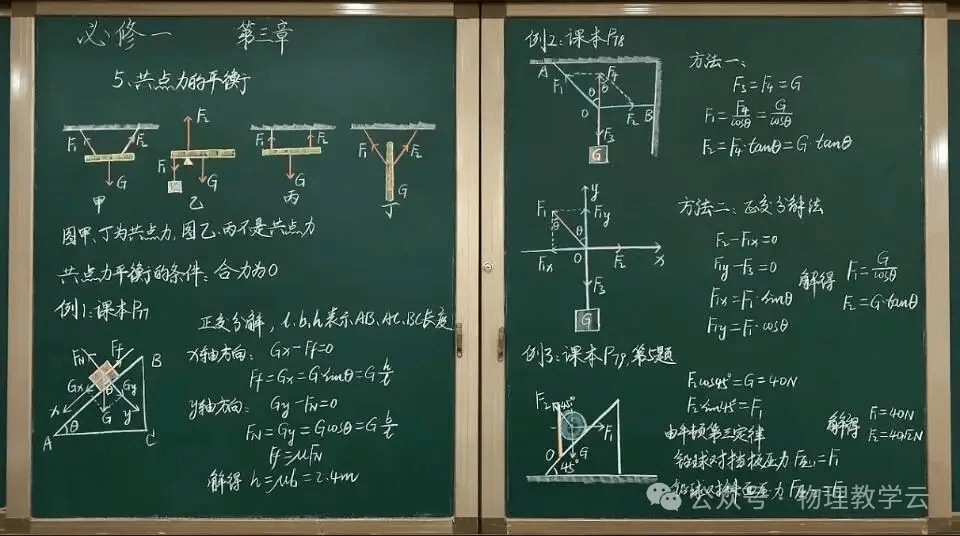 必修一 第三章
5、共点力的平衡
F₁ F₂ G 甲
F₂ F₁ G 乙
F₁ F₂ G 丙
F₁ F₂ G 丁
图甲、丁为共点力，图乙、丙不是共点力
共点力平衡的条件：合力为0
例1：课本P77
正交分解，l、b、h表示AB、AC、BC长度
x轴方向：Gx－Ff＝0
Ff＝Gx＝G·sinθ＝G h/l
y轴方向：Gy－FN＝0
FN＝Gy＝Gcosθ＝G b/l
Ff＝μFN
解得 h＝μb＝2.4m
FN Ff B Gx θ Gy x G y A θ C
例2：课本P78
A F₁ F₄ θ θ O F₂ B F₃ G
方法一、
F₃＝F₄＝G
F₁＝F₄/cosθ＝G/cosθ
F₂＝F₄·tanθ＝G·tanθ
y F₁ F₁y θ θ F₁x O F₂ x F₃ G
方法二：正交分解法
F₂－F₁x＝0
F₁y－F₃＝0
F₁x＝F₁·sinθ
F₁y＝F₁·cosθ
解得 F₁＝G/cosθ
F₂＝G·tanθ
例3：课本P79，第5题
F₂ 45° F₁ O G 45°
F₂cos45°＝G＝40N
F₂sin45°＝F₁
解得 F₁＝40N
F₂＝40√2N
由牛顿第三定律
铅球对挡板压力F压₁＝F₁
铅球对斜面压力
公众号·物理教学云